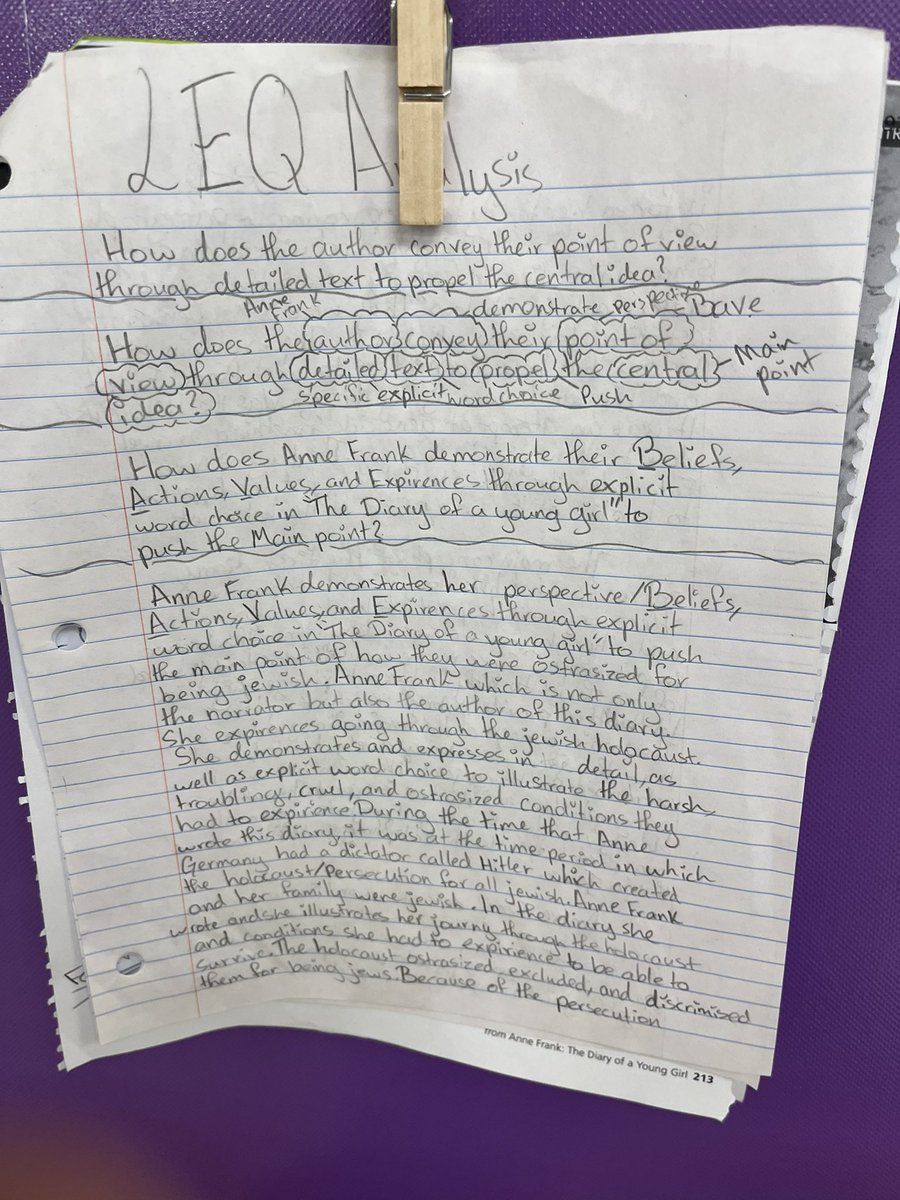 2EQ Analysis
How does the author convey their point of view
through detailed text to propel the central idea?
Anne Frank demonstrate perspective Bave
How does the author convey their point of
view through detailed text to propel the central Main point
idea? specific explicit word choice Push
How does Anne Frank demonstrate their Beliefs,
Actions, Values, and Expirences through explicit
word choice in "The Diary of a young girl" to
push the Main point?
Anne Frank demonstrates her perspective/Beliefs,
Actions, Values, and Expirences through explicit
word choice in "The Diary of a young girl" to push
the main point of how they were ostrasized for
being jewish. Anne Frank which is not only
the narrator but also the author of this diary.
She expirences going through the jewish holocaust.
She demonstrates and expresses in detail, as
well as explicit word choice to illustrate the harsh,
troubling, cruel, and ostrasized conditions they
had to expirience. During the time that Anne
wrote this diary, it was at the time period in which
Germany had a dictator called Hitler which created
the holocaust/persecution for all jewish. Anne Frank
and her family were jewish. In the diary she
wrote and she illustrates her journy through the holocaust
and conditions she had to expirience to be able to
survive. The holocaust ostrasized, excluded, and discrimised
them for being jews. Because of the persecution
from Anne Frank: The Diary of a Young Girl 213